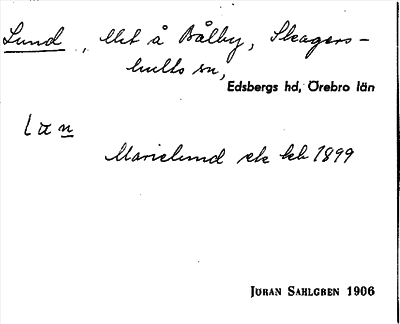 Lund, lht å Bålby, Skagers-
hults sn,
Edsbergs hd, Örebro län
Marielund ek kb 1899
JÖRAN SAHLGREN 1906